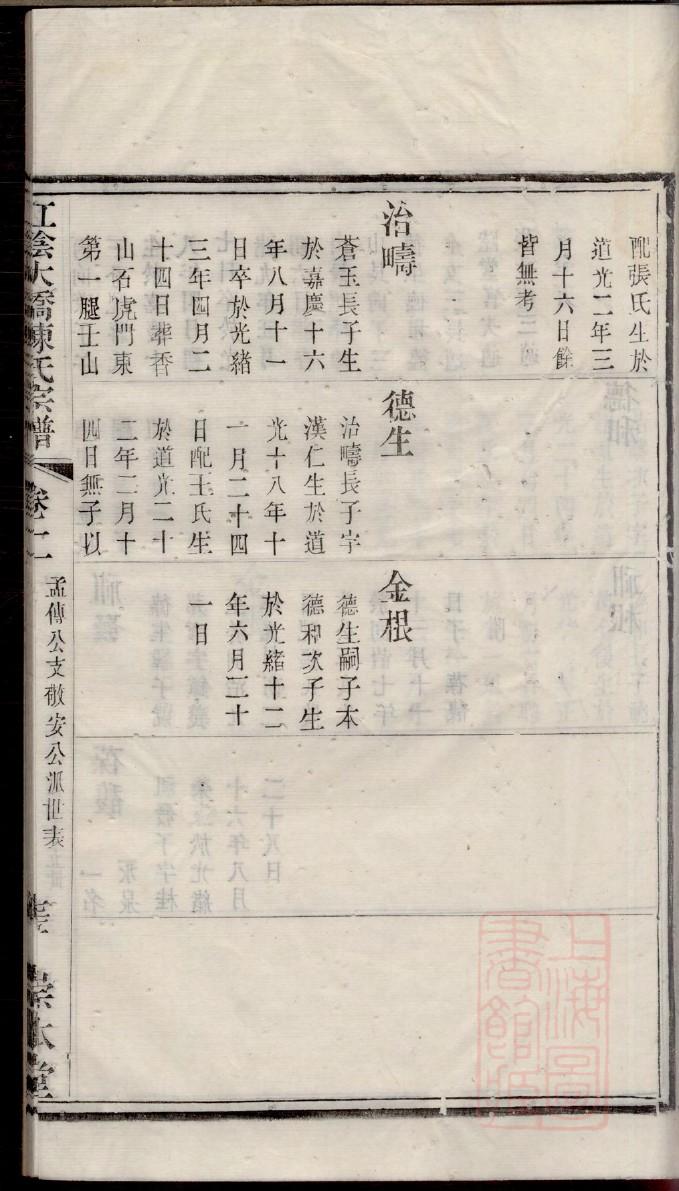 配張氏生於
道光二年三
月十六日餘
皆無考
治疇
蒼玉長子生
於嘉慶十六
年八月十一
日卒於光緒
三年四月二
十四日葬香
山石虎門東
第一腿壬山
德生
治疇長子字
漢仁生於道
光十八年十
一月二十四
日配王氏生
於道光二十
二年二月十
四日無子以
金根
德生嗣子本
德和次子生
於光緒十二
年六月三十
一日
江陰大橋陳氏宗譜
卷十一
孟傳公支敬安公派世表
崇本堂
上海圖書館藏